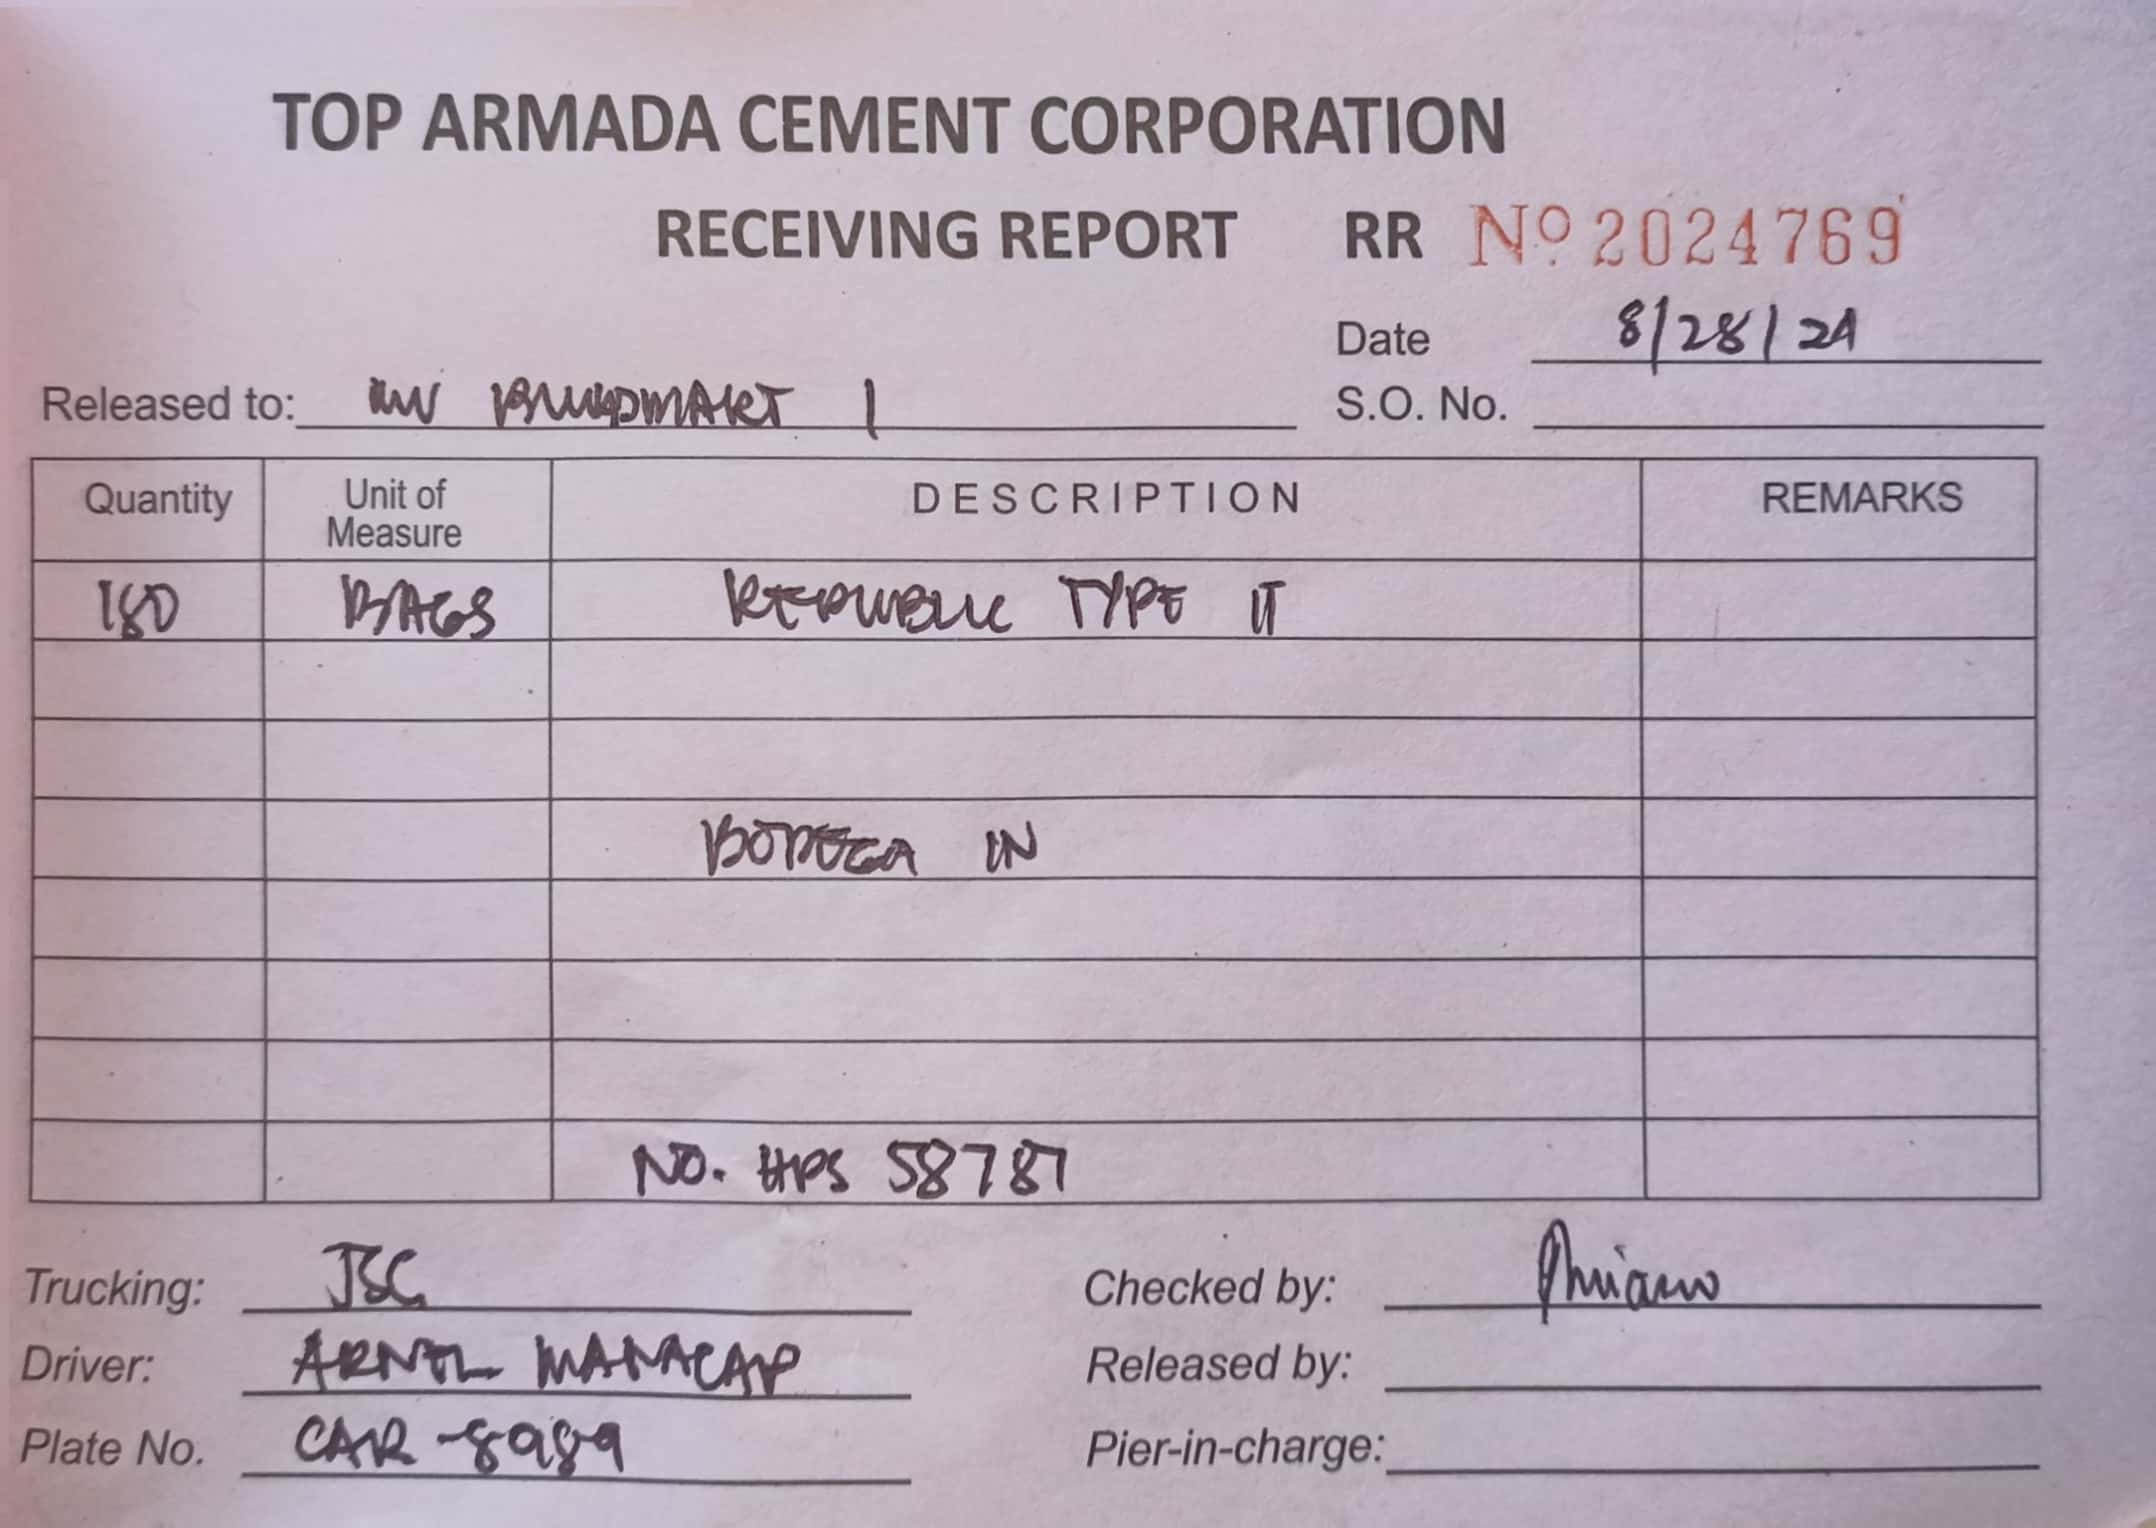 TOP ARMADA CEMENT CORPORATION
RECEIVING REPORT RR Nº 2024769
Date 8/28/24
Released to: BUILDMART 1
S.O. No.
Quantity Unit of Measure DESCRIPTION REMARKS
180 BAGS REPUBLIC TYPE IT
BODEGA IN
NO. HPS 58787
Trucking: JSC
Checked by:
Driver: ARNEL MANACAP
Released by:
Plate No. CAR-8989
Pier-in-charge: